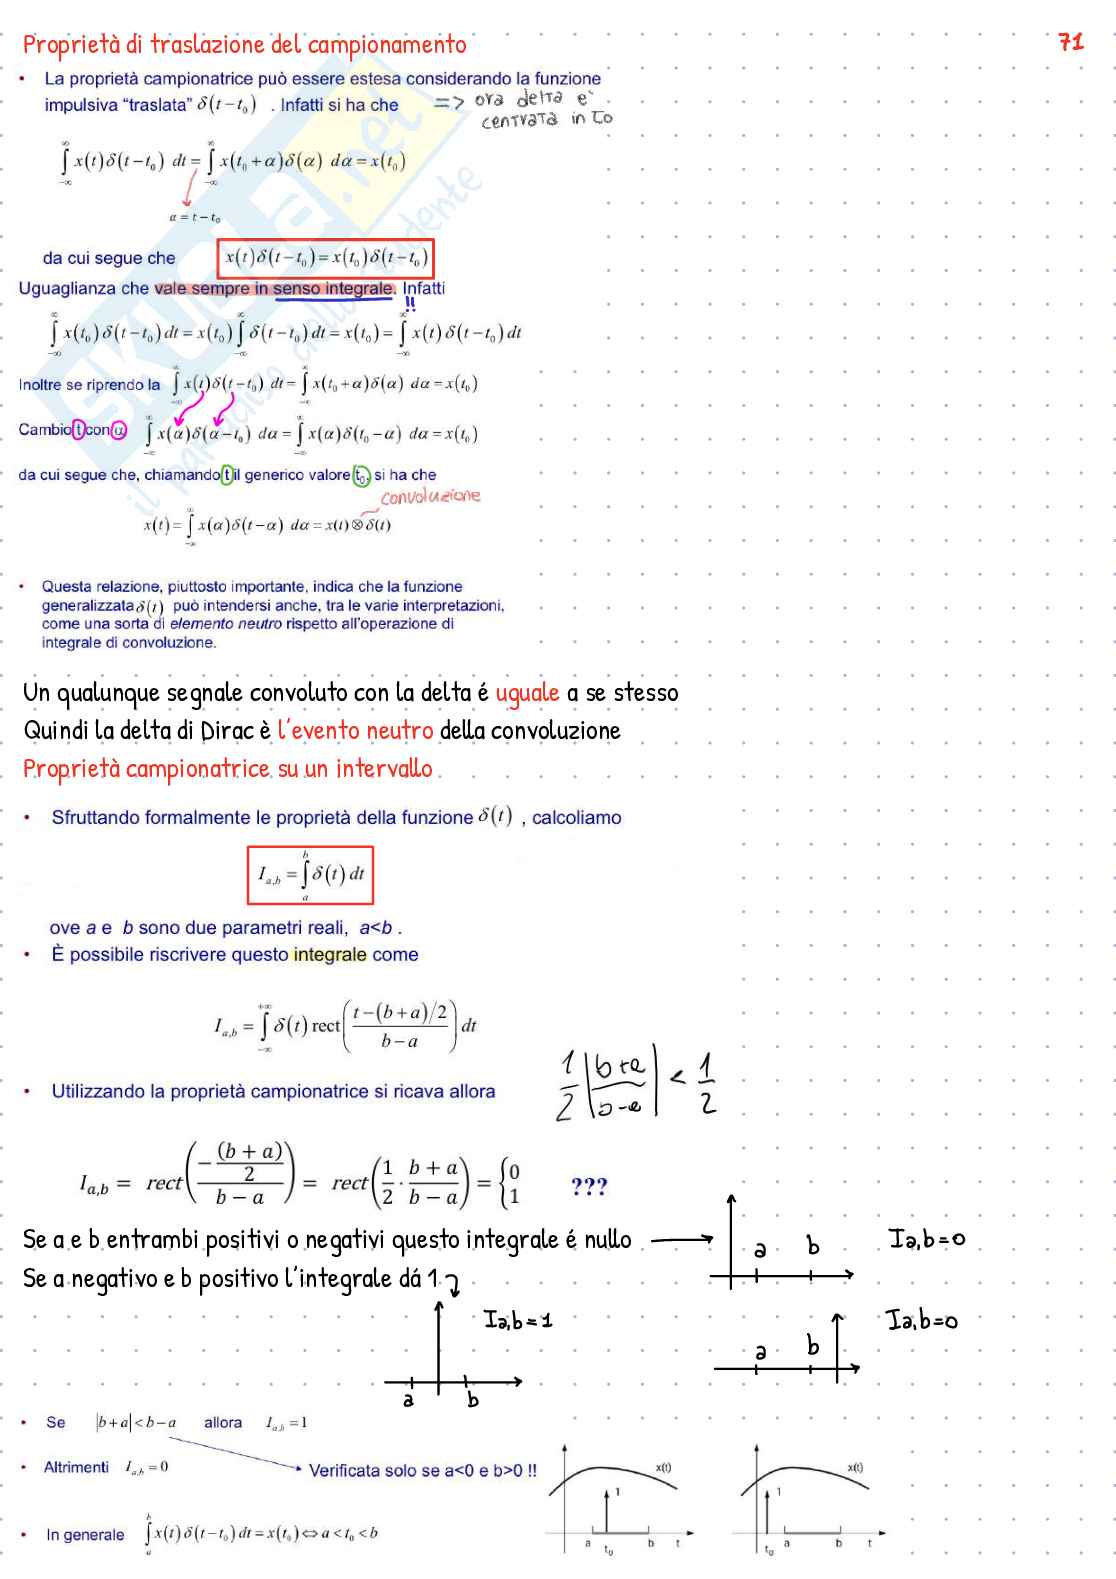 Proprietà di traslazione del campionamento
71
• La proprietà campionatrice può essere estesa considerando la funzione
impulsiva “traslata” δ(t−t₀) . Infatti si ha che
=> ora delta e'
centrata in to
∫_{−∞}^{∞} x(t)δ(t−t₀) dt = ∫_{−∞}^{∞} x(t₀+α)δ(α) dα = x(t₀)
α = t − t₀
da cui segue che x(t)δ(t−t₀)=x(t₀)δ(t−t₀)
Uguaglianza che vale sempre in senso integrale. Infatti
!!
∫_{−∞}^{∞} x(t₀)δ(t−t₀)dt = x(t₀)∫_{−∞}^{∞} δ(t−t₀)dt = x(t₀) = ∫_{−∞}^{∞} x(t)δ(t−t₀)dt
Inoltre se riprendo la ∫_{−∞}^{∞} x(t)δ(t−t₀) dt = ∫_{−∞}^{∞} x(t₀+α)δ(α) dα = x(t₀)
Cambio t con α ∫_{−∞}^{∞} x(α)δ(α−t₀) dα = ∫_{−∞}^{∞} x(α)δ(t₀−α) dα = x(t₀)
da cui segue che, chiamando t il generico valore t₀, si ha che
convoluzione
x(t) = ∫_{−∞}^{∞} x(α)δ(t−α) dα = x(t)⊗δ(t)
• Questa relazione, piuttosto importante, indica che la funzione
generalizzata δ(t) può intendersi anche, tra le varie interpretazioni,
come una sorta di elemento neutro rispetto all’operazione di
integrale di convoluzione.
Un qualunque segnale convoluto con la delta é uguale a se stesso
Quindi la delta di Dirac è l’evento neutro della convoluzione
Proprietà campionatrice su un intervallo
• Sfruttando formalmente le proprietà della funzione δ(t) , calcoliamo
I_{a,b} = ∫_{a}^{b} δ(t)dt
ove a e b sono due parametri reali, a<b .
• È possibile riscrivere questo integrale come
I_{a,b} = ∫_{−∞}^{+∞} δ(t) rect((t−(b+a)/2)/(b−a)) dt
• Utilizzando la proprietà campionatrice si ricava allora
1/2 |b+a/b-a| < 1/2
I_{a,b} = rect(−((b+a)/2)/(b−a)) = rect(1/2 · (b+a)/(b−a)) = {0 1
???
Se a e b entrambi positivi o negativi questo integrale é nullo
a b
Ia,b=0
Se a negativo e b positivo l’integrale dá 1
Ia,b=1
a b
a b
Ia,b=0
• Se |b+a|<b−a allora I_{a,b}=1
• Altrimenti I_{a,b}=0
Verificata solo se a<0 e b>0 !!
• In generale ∫_{a}^{b} x(t)δ(t−t₀)dt = x(t₀) ⇔ a<t₀<b
x(t)
1
a t₀ b t
x(t)
1
t₀ a b t
SKUOLA.net
il paradiso dello studente